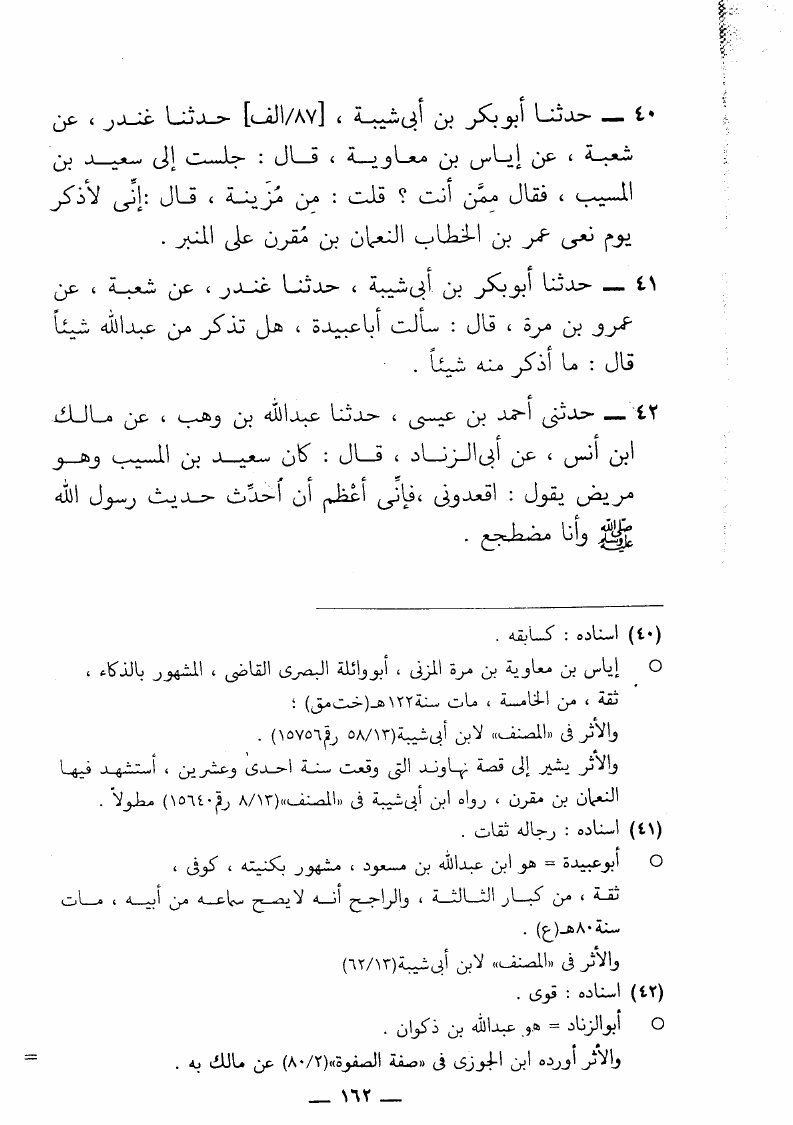 ٤٠ — حدثنا أبوبكر بن أبى شيبة ، [٨٧/الف] حدثنا غندر ، عن
شعبة ، عن إياس بن معاوية ، قال : جلست إلى سعيد بن
المسيب ، فقال مِمَّن أنت ؟ قلت : مِن مُزَينة ، قال :إنِّى لأذكر
يوم نعى عمر بن الخطاب النعمان بن مُقرن على المنبر .
٤١ — حدثنا أبوبكر بن أبى شيبة ، حدثنا غندر ، عن شعبة ، عن
عمرو بن مرة ، قال : سألت أباعبيدة ، هل تذكر من عبدالله شيئاً
قال : ما أذكر منه شيئاً .
٤٢ — حدثنى أحمد بن عيسى ، حدثنا عبدالله بن وهب ، عن مالك
ابن أنس ، عن أبى الزناد ، قال : كان سعيد بن المسيب وهو
مريض يقول : اقعدونى ،فإنِّى أعْظم أن اُحدِّث حديث رسول الله
ﷺ وأنا مضطجع .
(٤٠) اسناده : كسابقه .
○ إياس بن معاوية بن مرة المزنى ، أبووائلة البصرى القاضى ، المشهور بالذكاء ،
ثقة ، من الخامسة ، مات سنة١٢٢هـ(خت‌مق) ؛
والأثر فى «المصنف» لابن أبى شيبة(٥٨/١٣ رقم١٥٧٥٦) .
والأثر يشير إلى قصة نهاوند التى وقعت سنة احدى وعشرين ، أستشهد فيها
النعمان بن مقرن ، رواه ابن أبى شيبة فى «المصنف»(٨/١٣ رقم١٥٦٤٠) مطولاً .
(٤١) اسناده : رجاله ثقات .
○ أبوعبيدة = هو ابن عبدالله بن مسعود ، مشهور بكنيته ، كوفى ،
ثقة ، من كبار الثالثة ، والراجح أنه لايصح سماعه من أبيه ، مات
سنة٨٠هـ(ع) .
والأثر فى «المصنف» لابن أبى شيبة(٦٢/١٣)
(٤٢) اسناده : قوى .
○ أبوالزناد = هو عبدالله بن ذكوان .
والأثر أورده ابن الجوزى فى «صفة الصفوة»(٨٠/٢) عن مالك به . =
— ١٦٢ —